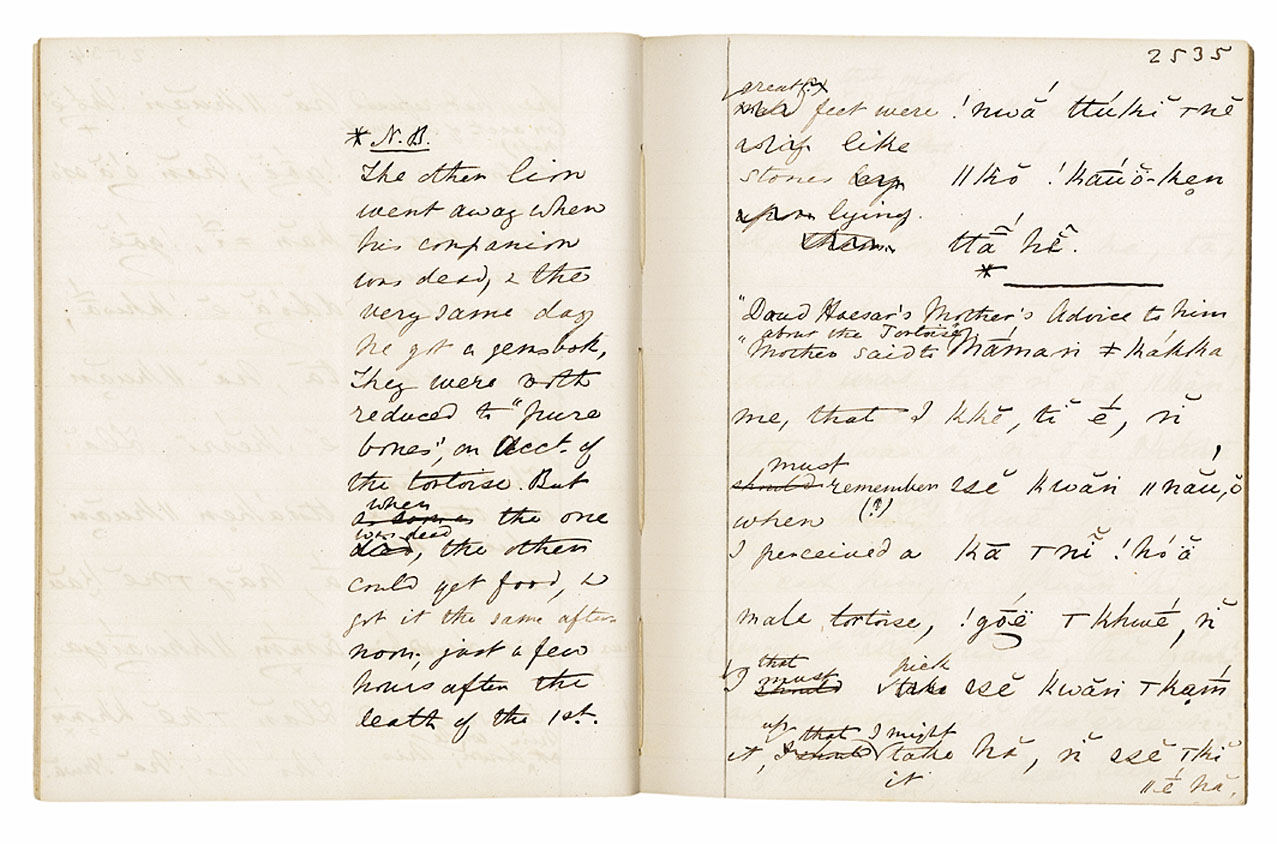 * N.B.
The other lion
went away when
his companion
was dead, & the
very same day
he got a gemsbok,
They were both
reduced to "pure
bones", on acct. of
the tortoise. But
when
as soon as the one
was dead
died, the other
could get food, &
got it the same after-
noon, just a few
hours after the
death of the 1st.
2535
great(?)
feet were !nwā́ ttú́kĭ ꞇnĕ
like
stones ǁkŏ !kāúŏ-ken
lying.
them. ttā́ hĕ̃.
*
"Daud Hoesar's Mother's Advice to him
about the Tortoise
"Mother said to Māmaṅ ǂkákka
me, that I kkĕ, tĭ é, ṅ̆
must
should remember ssĕ kwāṅ ǁnāu, ŏ
when (?)
I perceived a kā ꞇnĭ !hó ă
male tortoise, !góë ꞇkhwé, ṅ̆
that
must pick
I should take ssĕ kwāṅ ꞇkaṃ́
up that I might
it, I should take hă, ṅ̆ ssĕ ꞇkĭ
it ǁé hă,